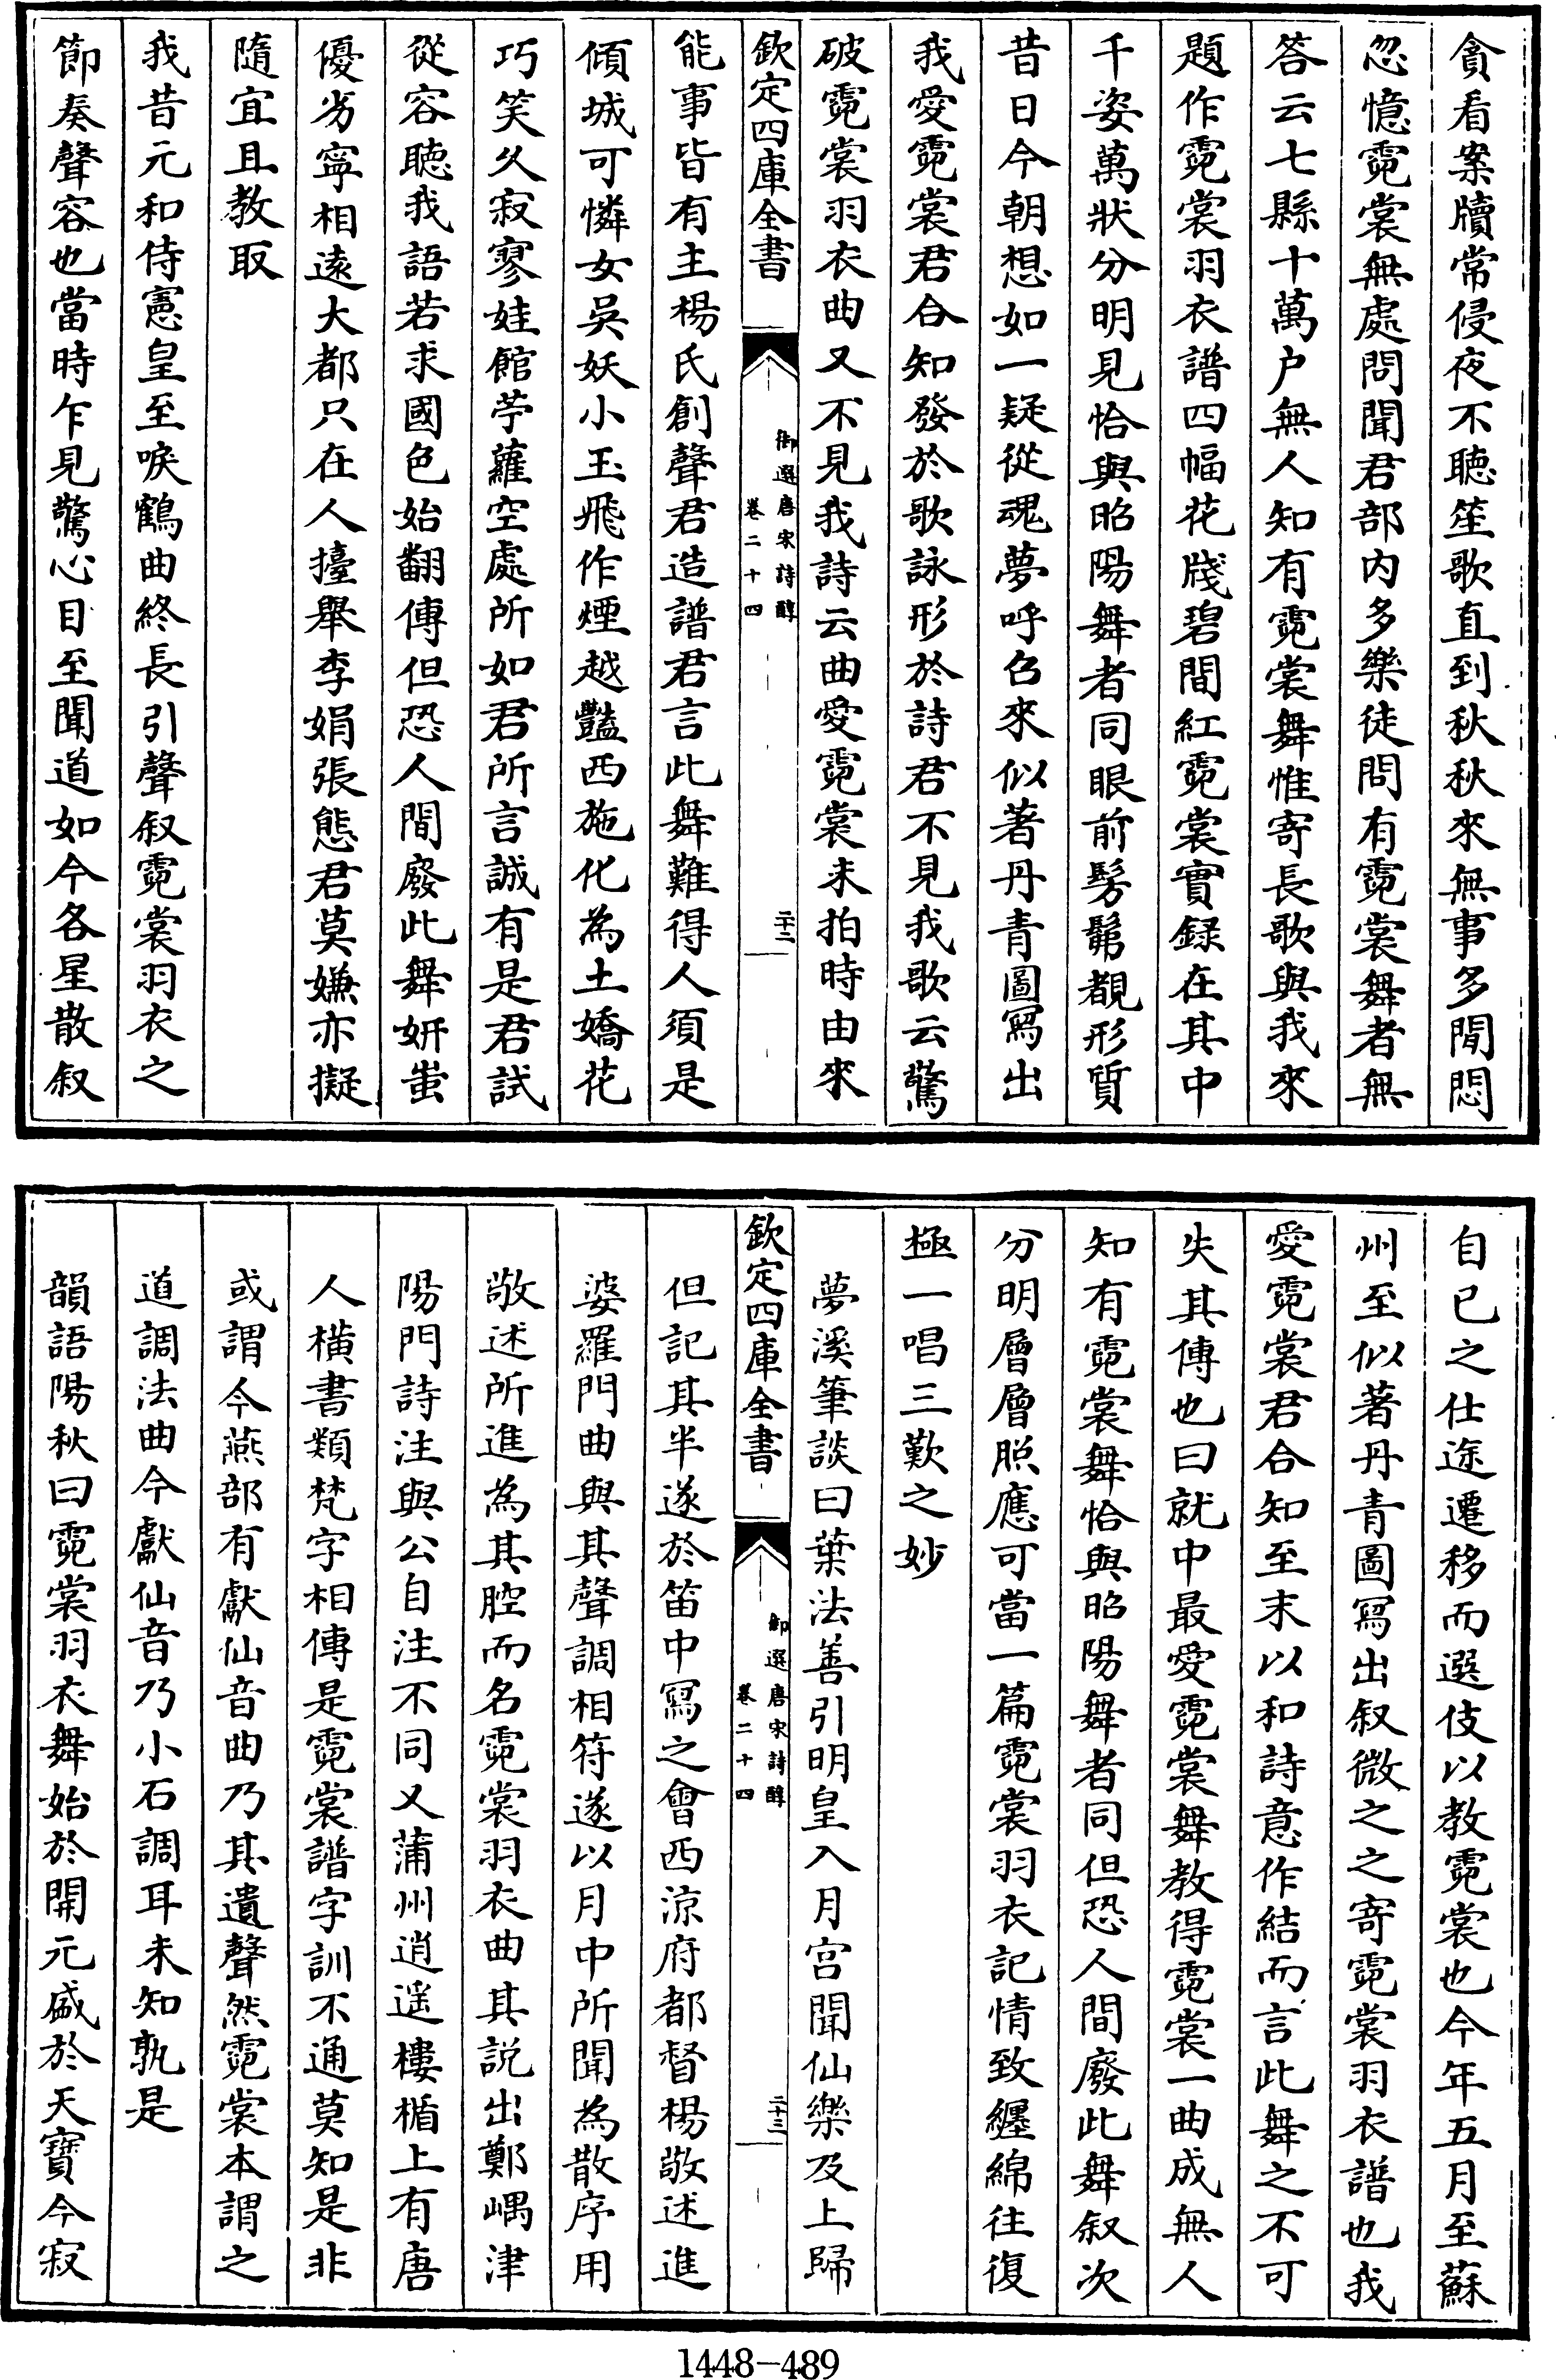 貪看案牘常侵夜不聴笙歌直到秋秋來無事多閒悶
忽憶霓裳無處問聞君部内多樂徒問有霓裳舞者無
答云七縣十萬户無人知有霓裳舞惟寄長歌與我來
題作霓裳羽衣譜四幅花牋碧間紅霓裳實録在其中
千姿萬狀分明見恰與昭陽舞者同眼前髣髴覩形質
昔日今朝想如一疑從魂夢呼召來似著丹青圖寫出
我愛霓裳君合知發於歌詠形於詩君不見我歌云驚
破霓裳羽衣曲又不見我詩云曲愛霓裳未拍時由來
欽定四庫全書
御選唐宋詩醇
卷二十四
二十二
能事皆有主楊氏創聲君造譜君言此舞難得人須是
傾城可憐女吳妖小玉飛作煙越豔西施化為土嬌花
巧笑久寂寥娃館苧蘿空處所如君所言誠有是君試
從容聴我語若求國色始翻傳但恐人間廢此舞妍蚩
優劣寧相遠大都只在人擡舉李娟張態君莫嫌亦擬
隨宜且教取
我昔元和侍憲皇至唳鶴曲終長引聲叙霓裳羽衣之
節奏聲容也當時乍見驚心目至聞道如今各星散叙
自已之仕途遷移而選伎以教霓裳也今年五月至蘇
州至似著丹青圖寫出叙微之之寄霓裳羽衣譜也我
愛霓裳君合知至末以和詩意作結而言此舞之不可
失其傳也曰就中最愛霓裳舞教得霓裳一曲成無人
知有霓裳舞恰與昭陽舞者同但恐人間廢此舞叙次
分明層層照應可當一篇霓裳羽衣記情致纒綿往復
極一唱三歎之妙
夢溪筆談曰葉法善引明皇入月宫聞仙樂及上歸
欽定四庫全書
御選唐宋詩醇
卷二十四
二十三
但記其半遂於笛中寫之會西涼府都督楊敬述進
婆羅門曲與其聲調相符遂以月中所聞為散序用
敬述所進為其腔而名霓裳羽衣曲其説出鄭嵎津
陽門詩注與公自注不同又蒲州逍遥樓楯上有唐
人橫書類梵字相傳是霓裳譜字訓不通莫知是非
或謂今燕部有獻仙音曲乃其遺聲然霓裳本謂之
道調法曲今獻仙音乃小石調耳未知孰是
韻語陽秋曰霓裳羽衣舞始於開元盛於天寶今寂
1448-489